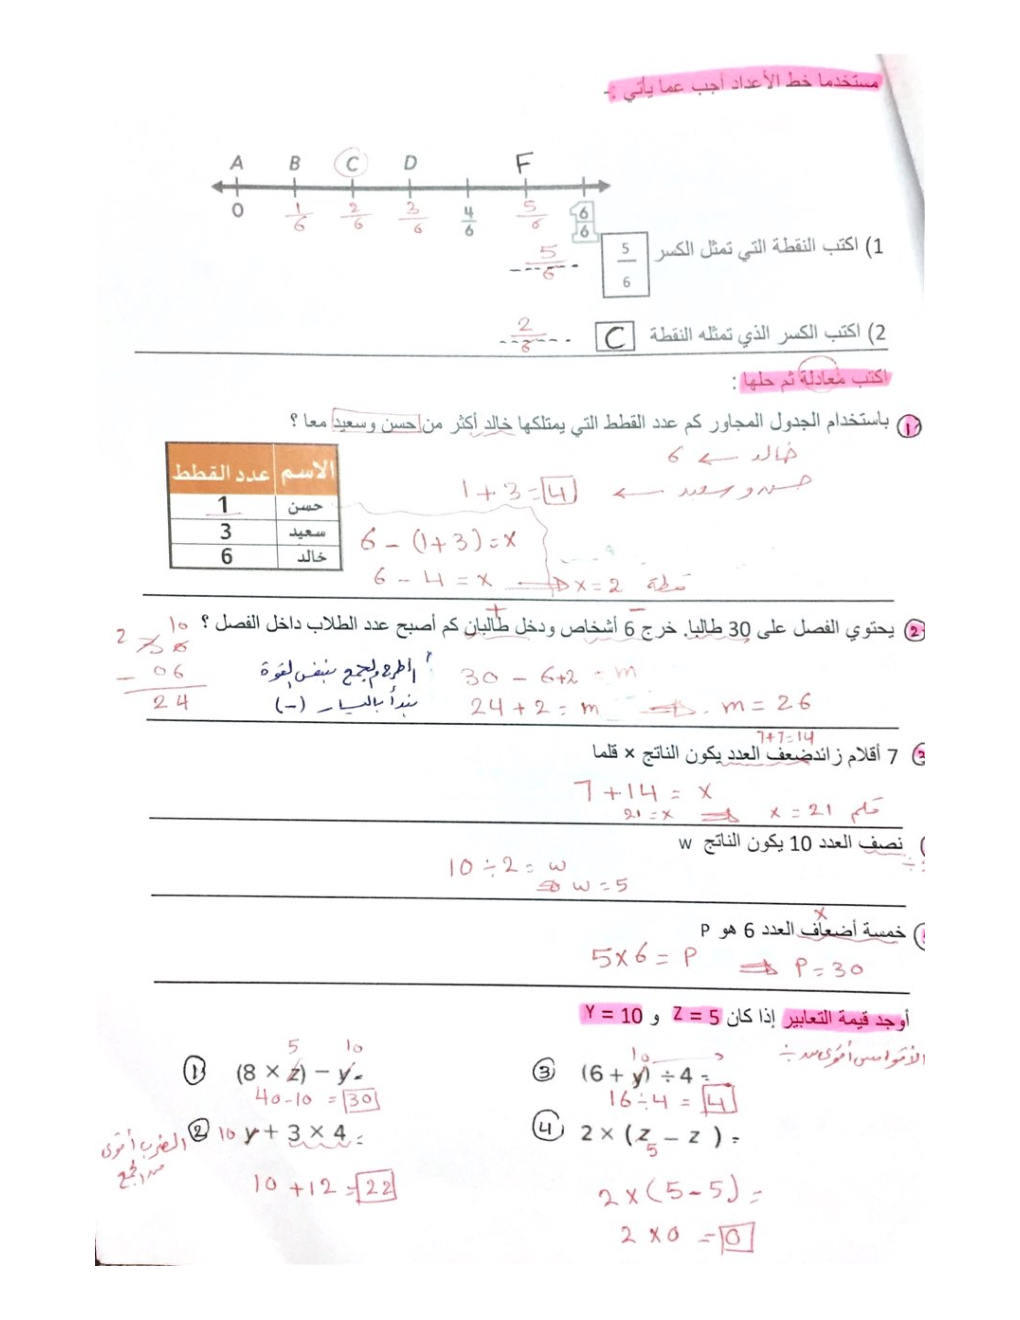 مستخدما خط الأعداد أجب عما يأتي :-
A B C D F
0 1/6 2/6 3/6 4/6 5/6 6/6
1) اكتب النقطة التي تمثل الكسر 5/6 5/6
2) اكتب الكسر الذي تمثله النقطة C 2/6
اكتب معادلة ثم حلها :
1 باستخدام الجدول المجاور كم عدد القطط التي يمتلكها خالد أكثر من حسن وسعيد معا ؟
خالد ← 6
حسن وسعيد ← 1 + 3 = 4
الاسم عدد القطط
حسن 1
سعيد 3
خالد 6
6 - (1+3) = x
6 - 4 = x ⇒ x = 2 قطة
+ -
2 يحتوي الفصل على 30 طالبا. خرج 6 أشخاص ودخل طالبان كم أصبح عدد الطلاب داخل الفصل ؟
2 10
30
- 06
24
الطرح والجمع بنفس القوة
نبدأ باليسار (-)
30 - 6+2 = m
24 + 2 = m ⇒ m = 26
7+7=14
3 7 أقلام زائد ضعف العدد يكون الناتج x قلما
7 + 14 = x
21 = x ⇒ x = 21 قلم
نصف العدد 10 يكون الناتج w
÷
10 ÷ 2 = w
⇒ w = 5
x
خمسة أضعاف العدد 6 هو P
5 x 6 = P ⇒ P = 30
أوجد قيمة التعابير إذا كان Z = 5 و Y = 10
الأقواس أقوى من ÷
5 10
1 (8 × z) − y =
40 - 10 = 30
10
3 (6 + y) ÷ 4 =
16 ÷ 4 = 4
2 10 y + 3 × 4 =
الضرب أقوى من الجمع
10 + 12 = 22
4 2 × (z − z) =
5
2 x (5 - 5) =
2 x 0 = 0